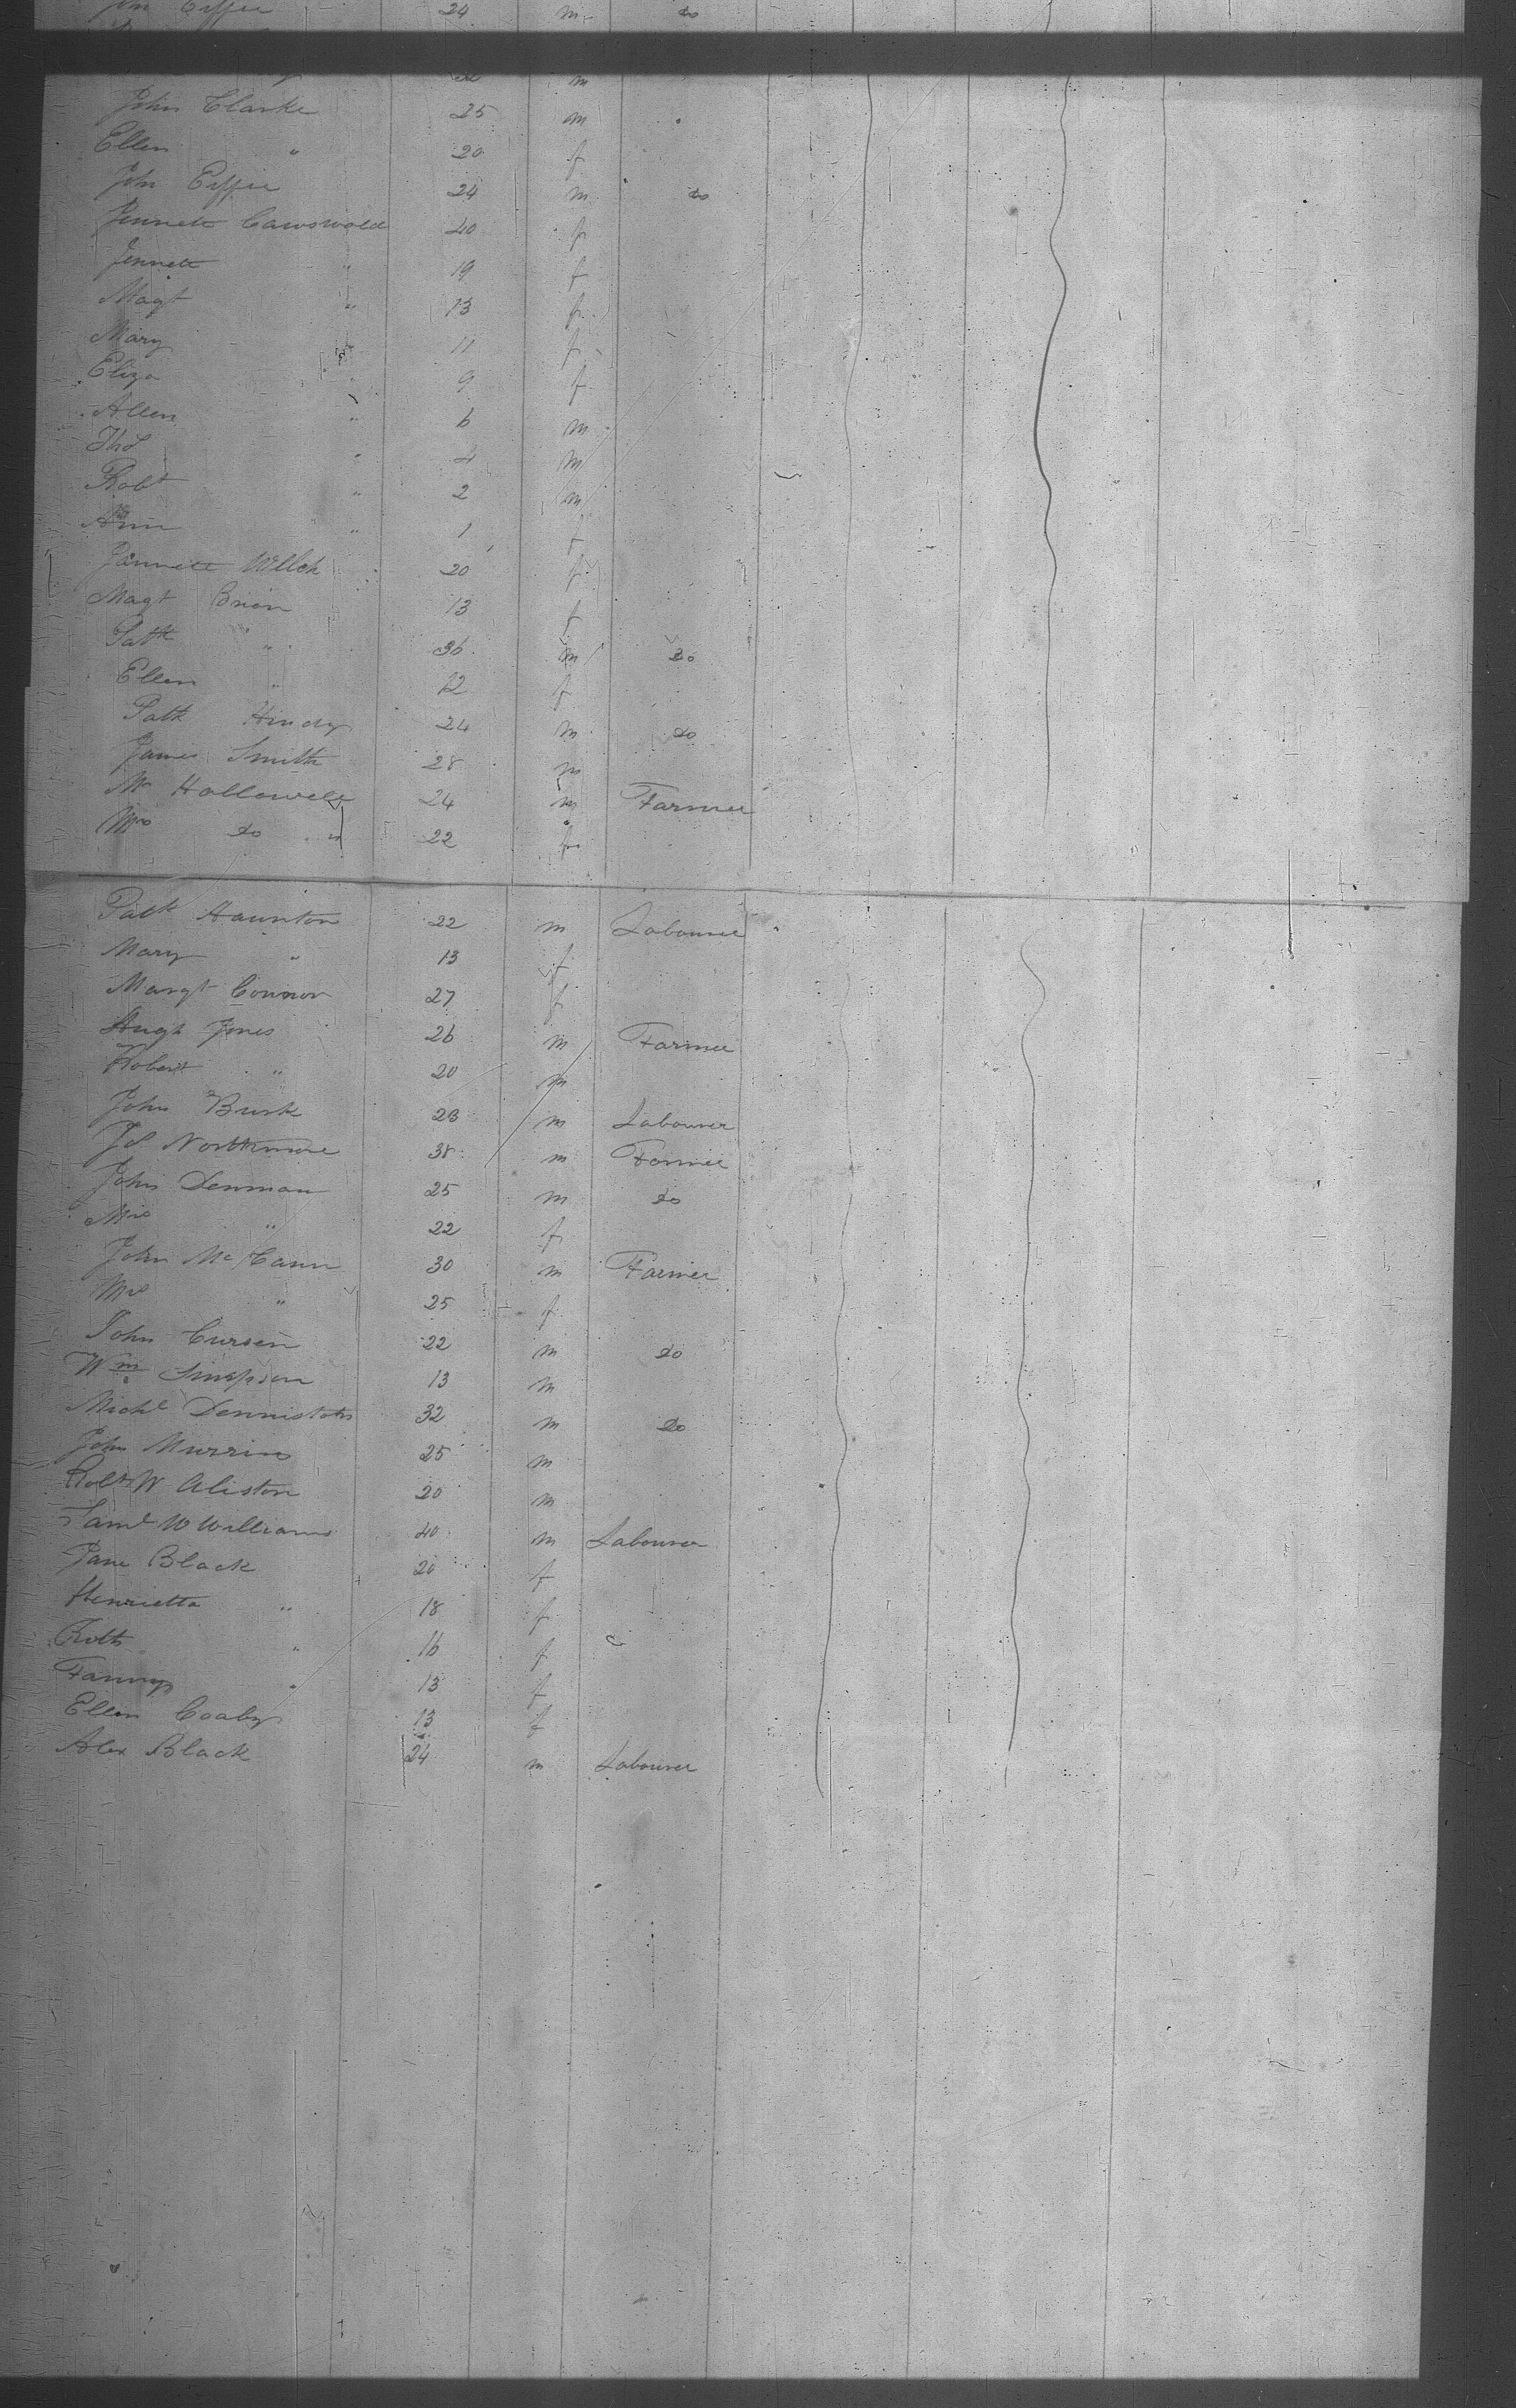 John Eiffee 24 m do
m
John Clarke 25 m
Ellen " 20 f
John Eiffee 24 m do
Jennett Cawswold 40 f
Jennett " 19 f
Magt " 13 f
Mary " 11 f
Eliza " 9 f
Allen " 6 m
Thos " 4 m
Robt " 2 m
Ann " 1 f
Jennett Welch 20 f
Magt Brion 13 f
Patk " 36 m do
Ellen " 12 f
Patk Hindy 24 m do
James Smith 28 m
Mr Hollowell 24 m Farmer
Mrs do " 22 f
Patk Haunton 22 m Labourer
Mary " 13 f
Margt Connor 27 f
Hugh Jones 26 m Farmer
Robert " 20 m
John Burk 23 m Labourer
Jos Northmore 38 m Farmer
John Denman 25 m do
Mrs " 22 f
John McCann 30 m Farmer
Mrs " 25 f
John Cursen 22 m do
Wm Simpson 13 m
Michl Denniston 32 m do
John Murrin 25 m
Robt W Aliston 20 m
Saml W Williams 40 m Labourer
Jane Black 20 f
Henrietta " 18 f
Ruth " 16 f
Fanny " 13 f
Ellen Coaby 13 f
Alex Black 24 m Labourer